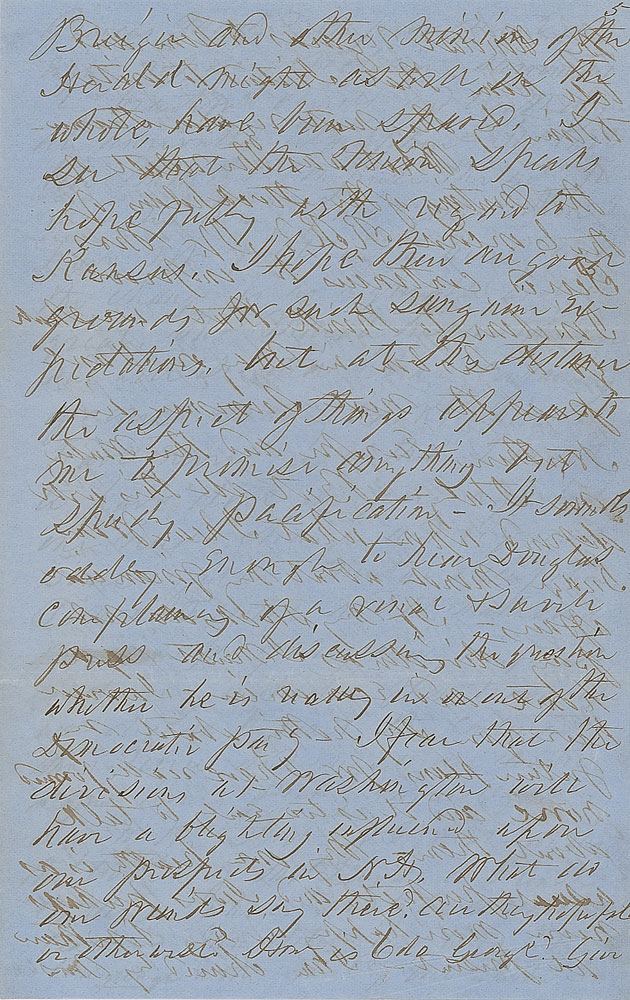 5
and other minions of the
Herald might as well, on the
whole, have been spared. I
see that the Union speaks
hopefully with regard to
Kansas. I hope there are good
grounds for such sanguine ex-
pectations, but at this distance
the aspect of things appears to
me to promise anything but
speedy pacification - It sounds
oddly enough to hear Douglas
complaining of a venal & servile
press and discussing the question
whether he is really in or out of the
Democratic party - I fear that the
divisions at Washington will
have a blighting influence upon
our prospects in N.H. What do
our friends say there? are they hopeful
or otherwise? How is Col. George? Give